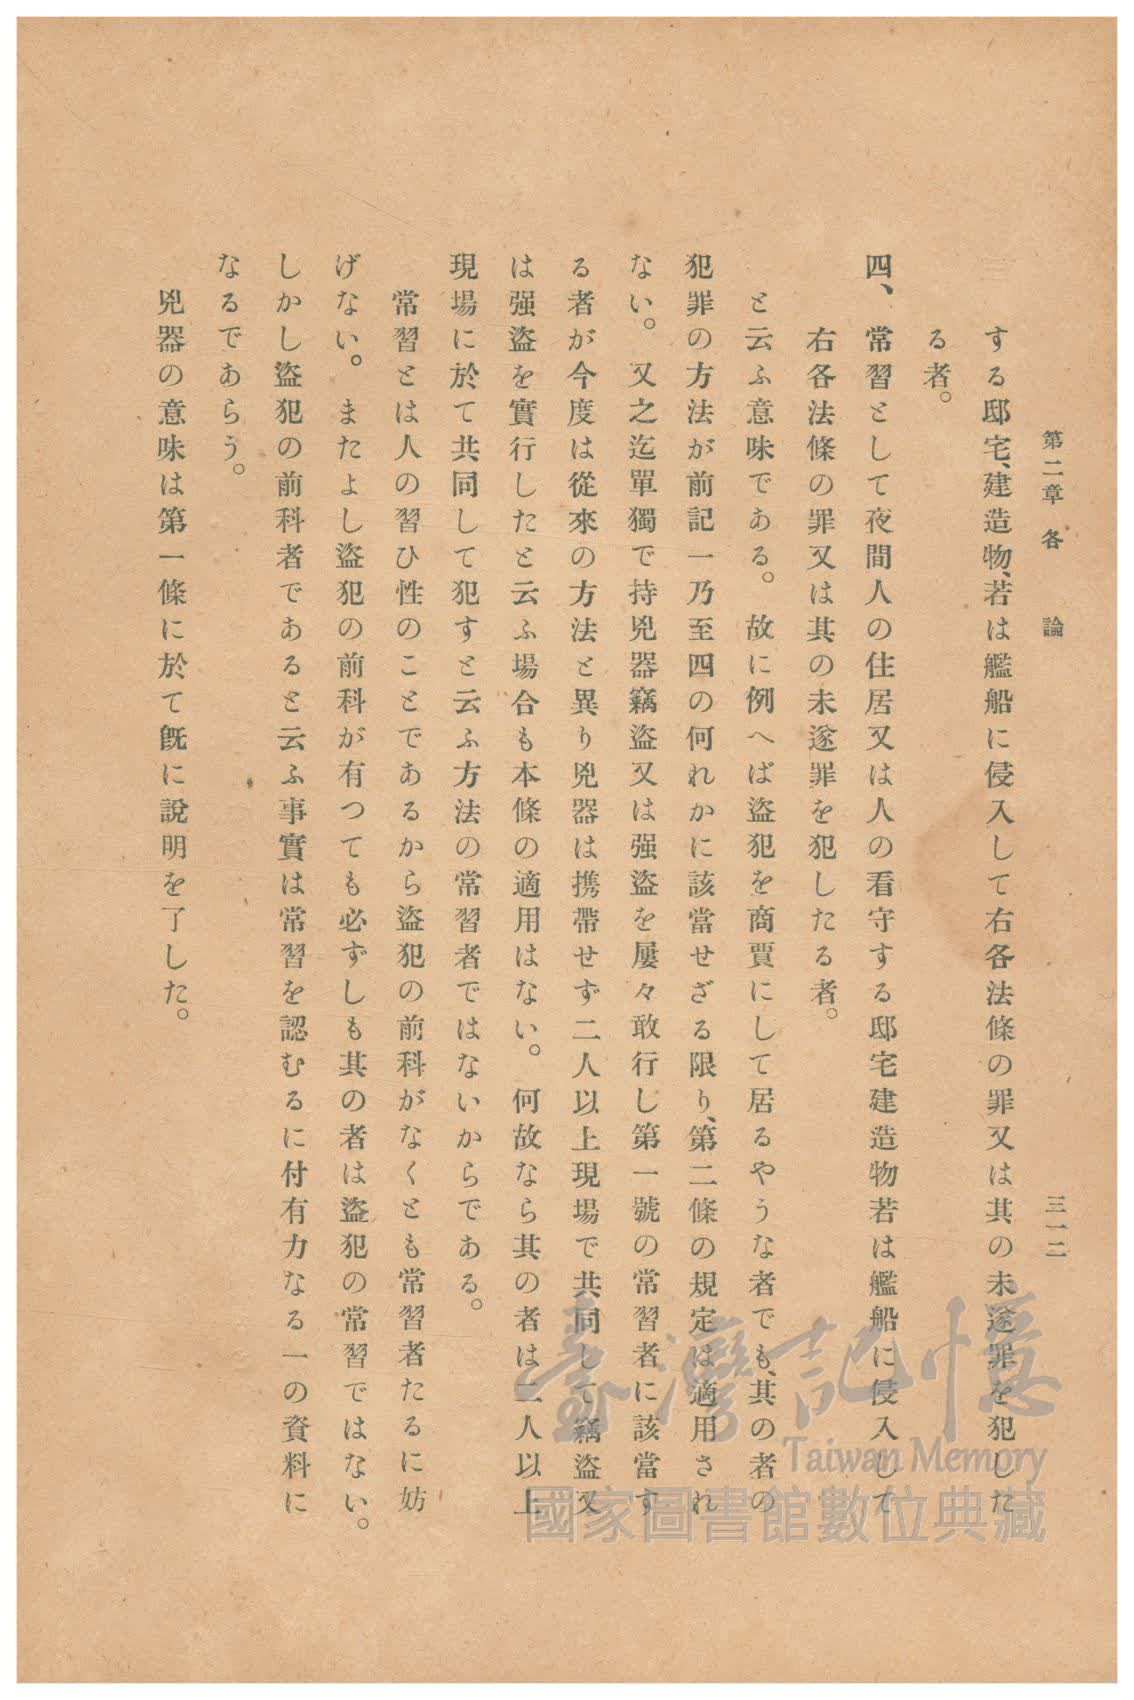 第二章 各 論 三一二
する邸宅、建造物、若は艦船に侵入して右各法條の罪又は其の未遂罪を犯した
る者。
四、常習として夜間人の住居又は人の看守する邸宅建造物若は艦船に侵入して
右各法條の罪又は其の未遂罪を犯したる者。
と云ふ意味である。故に例へば盜犯を商賈にして居るやうな者でも、其の者の
犯罪の方法が前記一乃至四の何れかに該當せざる限り、第二條の規定は適用され
ない。又之迄單獨で持兇器竊盜又は强盜を屢々敢行し第一號の常習者に該當す
る者が今度は從來の方法と異り兇器は携帶せず二人以上現場で共同して竊盜又
は强盜を實行したと云ふ場合も本條の適用はない。何故なら其の者は二人以上
現場に於て共同して犯すと云ふ方法の常習者ではないからである。
常習とは人の習ひ性のことであるから盜犯の前科がなくとも常習者たるに妨
げない。またよし盜犯の前科が有つても必ずしも其の者は盜犯の常習ではない。
しかし盜犯の前科者であると云ふ事實は常習を認むるに付有力なる一の資料に
なるであらう。
兇器の意味は第一條に於て旣に說明を了した。
臺灣記憶
Taiwan Memory
國家圖書館數位典藏